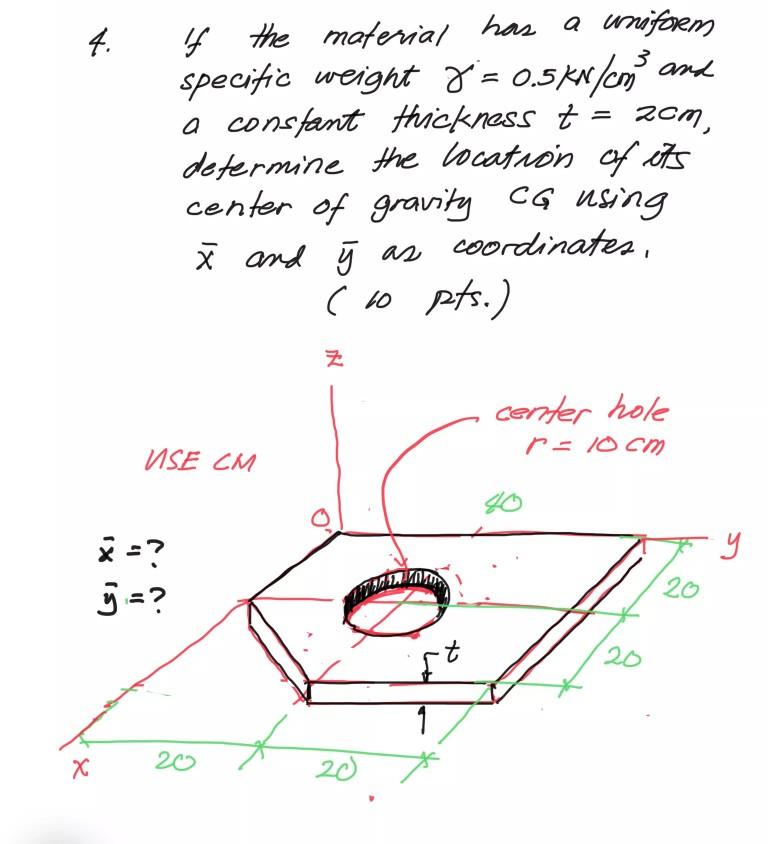 4. If the material has a uniform
specific weight γ = 0.5 KN/cm³ and
a constant thickness t = 2cm,
determine the location of its
center of gravity CG using
x̄ and ȳ as coordinates.
( 10 pts.)
z
center hole
r = 10 cm
USE CM
40
O
y
x̄ = ?
ȳ = ?
20
t
20
x
20
20